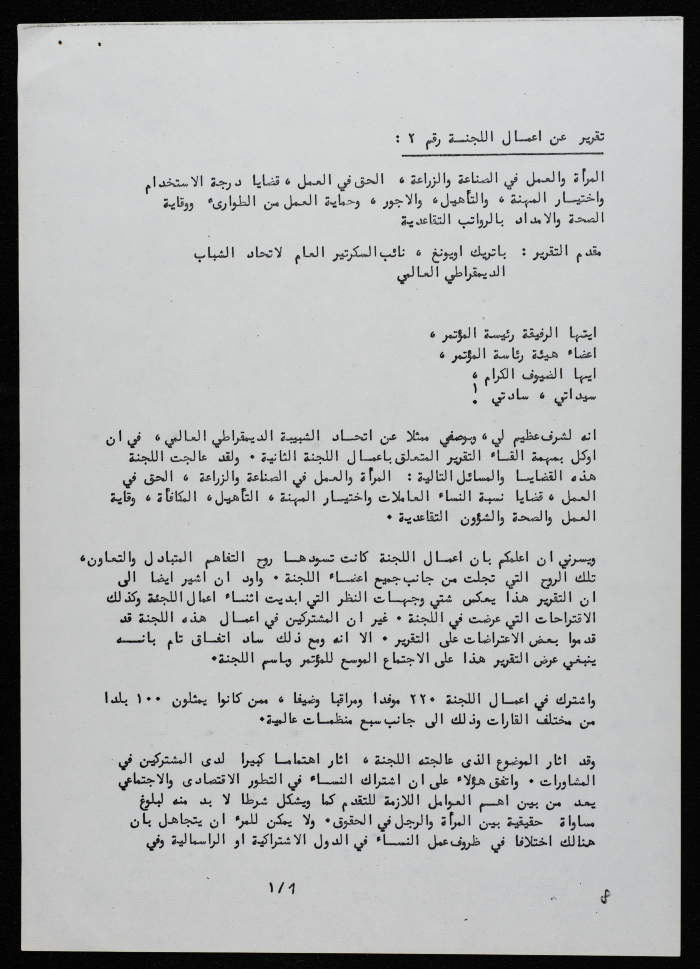 تقرير عن اعمال اللجنة رقم ٢ :
المرأة والعمل في الصناعة والزراعة ، الحق في العمل ، قضايا درجة الاستخدام
واختيار المهنة ، والتأهيل ، والاجور ، وحماية العمل من الطوارىء ووقاية
الصحة والامداد بالرواتب التقاعدية
مقدم التقرير : باتريك اويونغ ، نائب السكرتير العام لاتحاد الشباب
الديمقراطي العالمي
ايتها الرفيقة رئيسة المؤتمر ،
اعضاء هيئة رئاسة المؤتمر ،
ايها الضيوف الكرام ،
سيداتي ، سادتي !
انه لشرف عظيم لي ، وبوصفي ممثلا عن اتحاد الشبيبة الديمقراطي العالمي ، في ان
اوكل بمهمة القاء التقرير المتعلق باعمال اللجنة الثانية . ولقد عالجت اللجنة
هذه القضايا والمسائل التالية : المرأة والعمل في الصناعة والزراعة ، الحق في
العمل ، قضايا نسبة النساء العاملات واختيار المهنة ، التأهيل ، المكافأة ، وقاية
العمل والصحة والشؤون التقاعدية .
ويسرني ان اعلمكم بان اعمال اللجنة كانت تسودها روح التفاهم المتبادل والتعاون ،
تلك الروح التي تجلت من جانب جميع اعضاء اللجنة . واود ان اشير ايضا الى
ان التقرير هذا يعكس شتي وجهات النظر التي ابديت اثناء اعمال اللجنة وكذلك
الاقتراحات التي عرضت في اللجنة . غير ان المشتركين في اعمال هذه اللجنة قد
قدموا بعض الاعتراضات على التقرير . الا انه ومع ذلك ساد اتفاق تام بانه
ينبغي عرض التقرير هذا على الاجتماع الموسع للمؤتمر وباسم اللجنة .
واشترك في اعمال اللجنة ٢٢٠ موفدا ومراقبا وضيفا ، ممن كانوا يمثلون ١٠٠ بلدا
من مختلف القارات وذلك الى جانب سبع منظمات عالمية .
وقد اثار الموضوع الذى عالجته اللجنة ، اثار اهتماما كبيرا لدى المشتركين في
المشاورات . واتفق هؤلاء على ان اشتراك النساء في التطور الاقتصادى والاجتماعي
يعد من بين اهم العوامل اللازمة للتقدم كما ويشكل شرطا لا بد منه لبلوغ
مساواة حقيقية بين المرأة والرجل في الحقوق . ولا يمكن للمرء ان يتجاهل بان
هنالك اختلافا في ظروف عمل النساء في الدول الاشتراكية او الراسمالية وفي
١/1